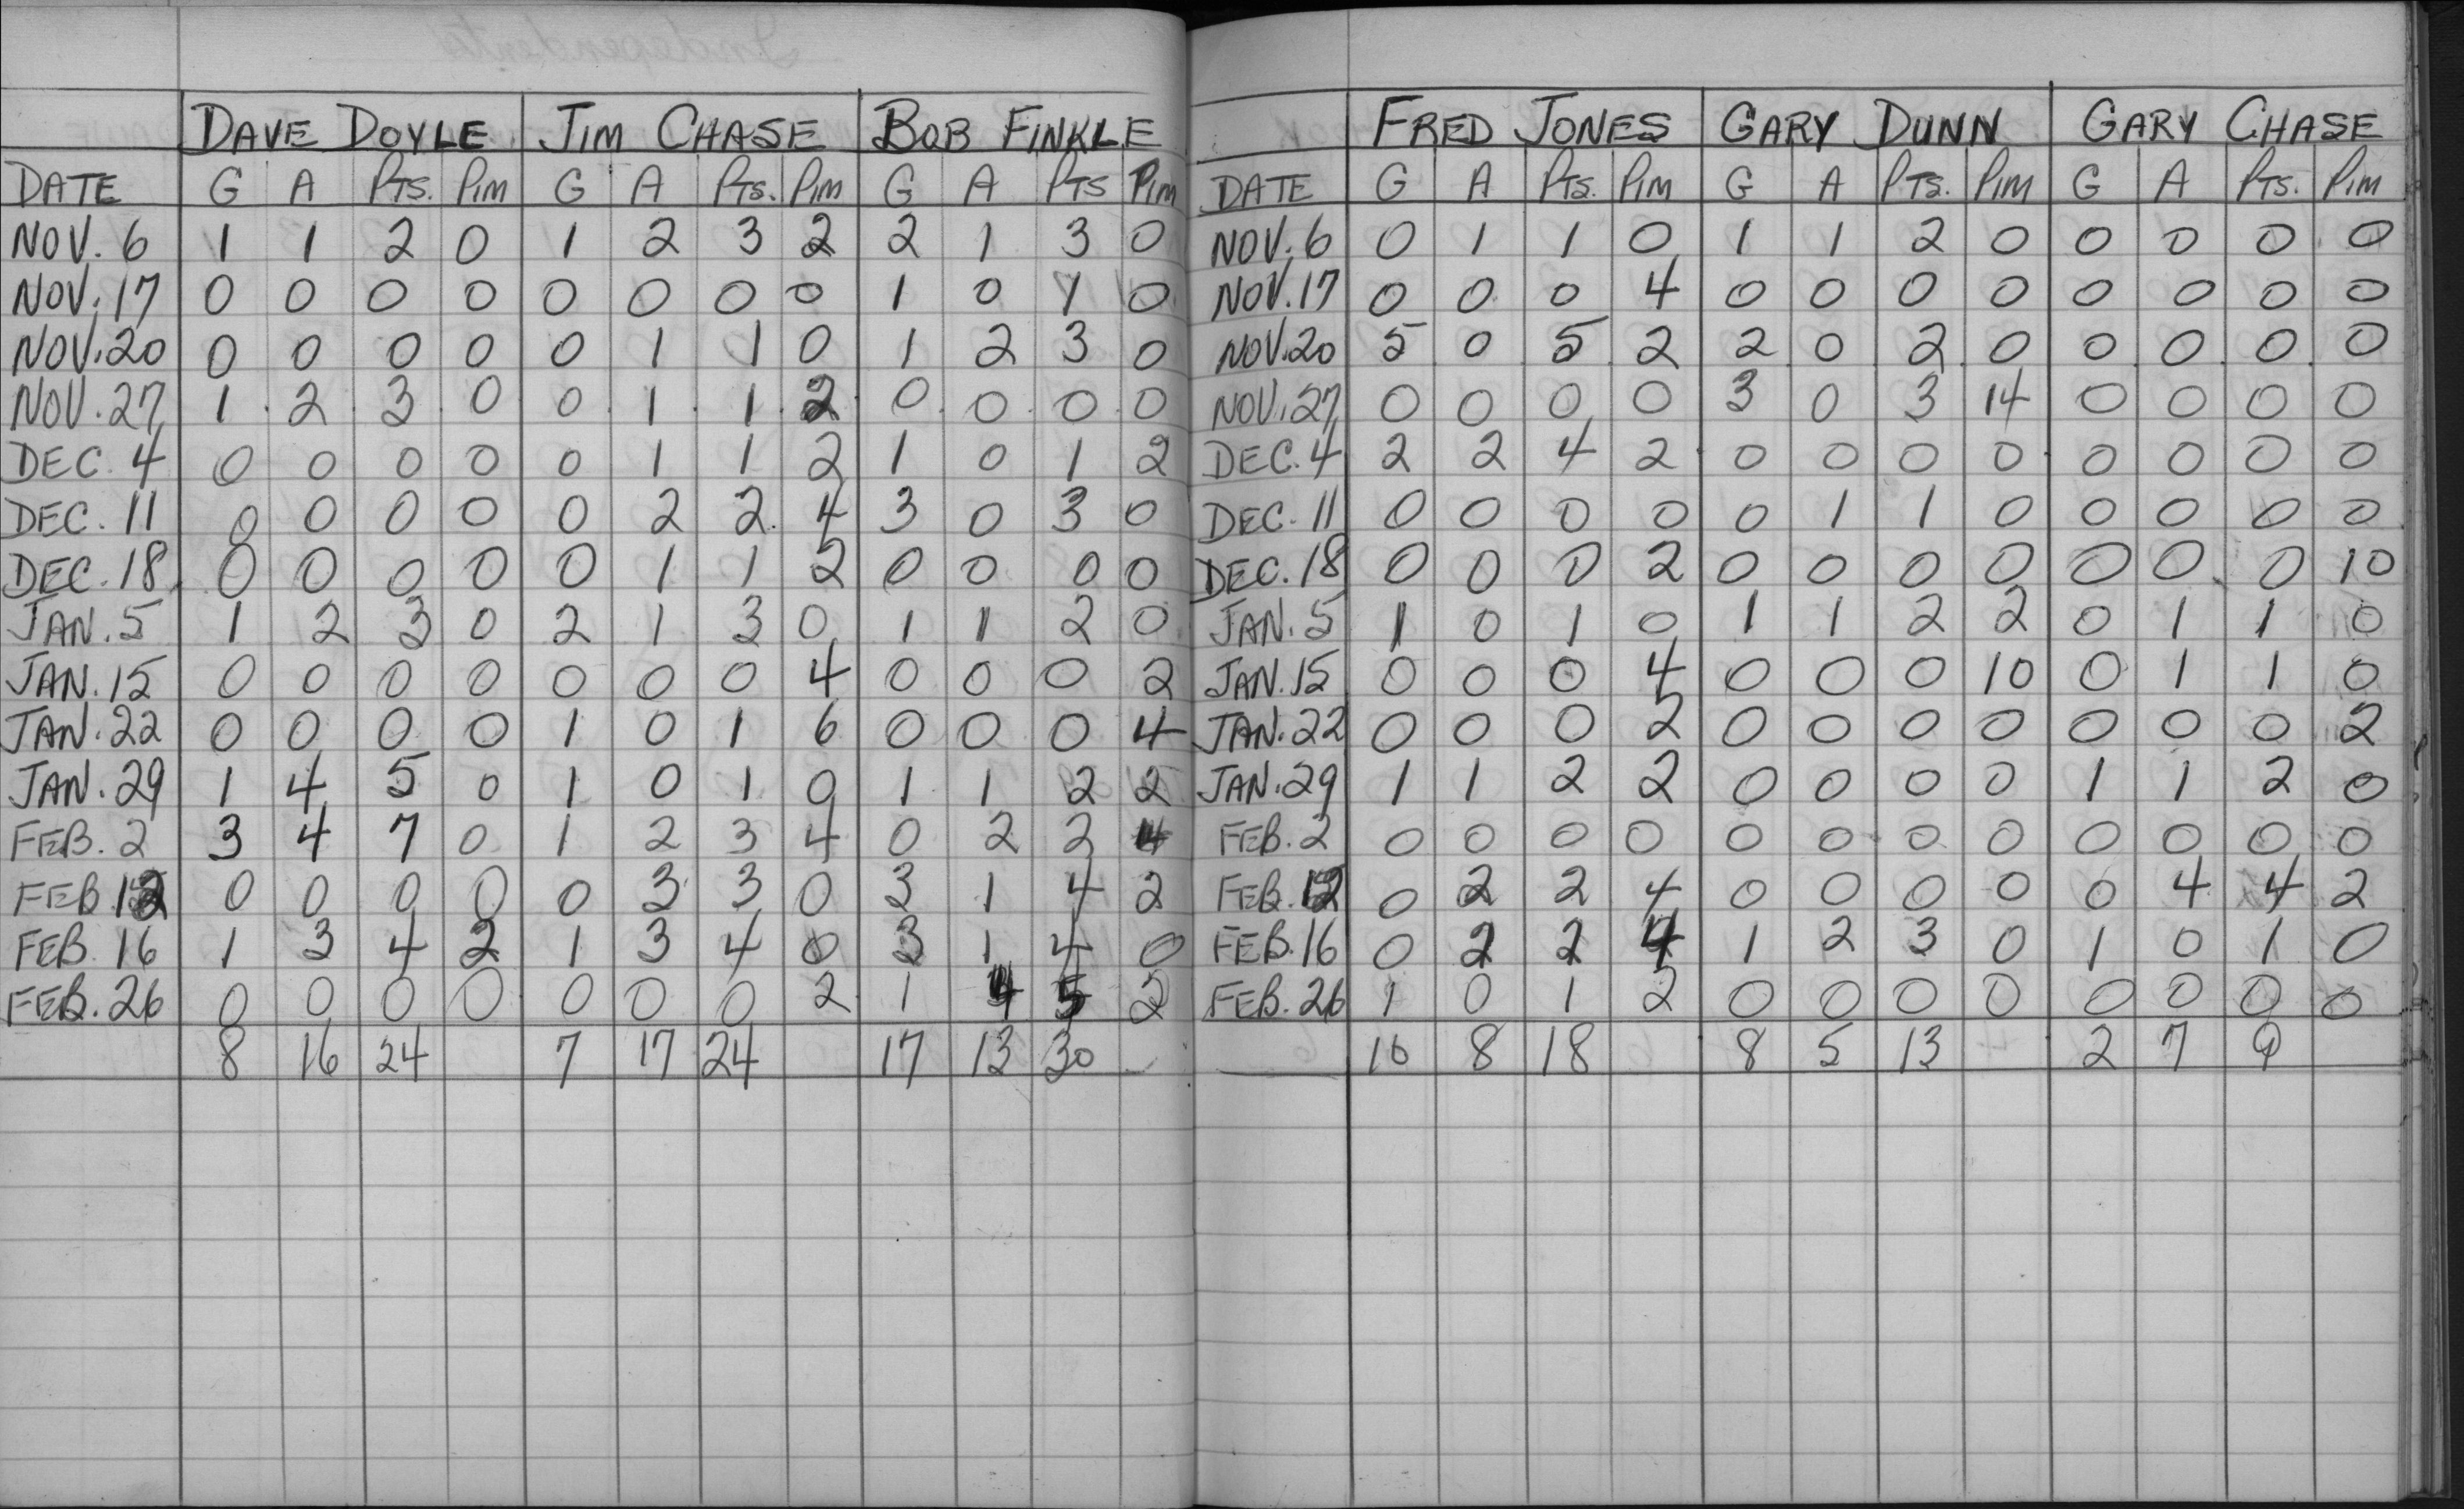 DAVE DOYLE JIM CHASE BOB FINKLE
DATE G A PTS. PIM G A PTS. PIM G A PTS PIM
NOV. 6 1 1 2 0 1 2 3 2 2 1 3 0
NOV. 17 0 0 0 0 0 0 0 0 1 0 1 0
NOV. 20 0 0 0 0 0 1 1 0 1 2 3 0
NOV. 27 1 2 3 0 0 1 1 2 0 0 0 0
DEC. 4 0 0 0 0 0 1 1 2 1 0 1 2
DEC. 11 0 0 0 0 0 2 2 4 3 0 3 0
DEC. 18 0 0 0 0 0 1 1 2 0 0 0 0
JAN. 5 1 2 3 0 2 1 3 0 1 1 2 0
JAN. 15 0 0 0 0 0 0 0 4 0 0 0 2
JAN. 22 0 0 0 0 1 0 1 6 0 0 0 4
JAN. 29 1 4 5 0 1 0 1 0 1 1 2 2
FEB. 2 3 4 7 0 1 2 3 4 0 2 2 4
FEB. 12 0 0 0 0 0 3 3 0 3 1 4 2
FEB. 16 1 3 4 2 1 3 4 0 3 1 4 0
FEB. 26 0 0 0 0 0 0 0 2 1 4 5 2
8 16 24 7 17 24 17 13 30
FRED JONES GARY DUNN GARY CHASE
DATE G A PTS. PIM G A PTS. PIM G A PTS. PIM
NOV. 6 0 1 1 0 1 1 2 0 0 0 0 0
NOV. 17 0 0 0 4 0 0 0 0 0 0 0 0
NOV. 20 5 0 5 2 2 0 2 0 0 0 0 0
NOV. 27 0 0 0 0 3 0 3 14 0 0 0 0
DEC. 4 2 2 4 2 0 0 0 0 0 0 0 0
DEC. 11 0 0 0 0 0 1 1 0 0 0 0 0
DEC. 18 0 0 0 2 0 0 0 0 0 0 0 10
JAN. 5 1 0 1 0 1 1 2 2 0 1 1 0
JAN. 15 0 0 0 4 0 0 0 10 0 1 1 0
JAN. 22 0 0 0 2 0 0 0 0 0 0 0 2
JAN. 29 1 1 2 2 0 0 0 0 1 1 2 0
FEB. 2 0 0 0 0 0 0 0 0 0 0 0 0
FEB. 12 0 2 2 4 0 0 0 0 0 4 4 2
FEB. 16 0 2 2 4 1 2 3 0 1 0 1 0
FEB. 26 1 0 1 2 0 0 0 0 0 0 0 0
10 8 18 8 5 13 2 7 9